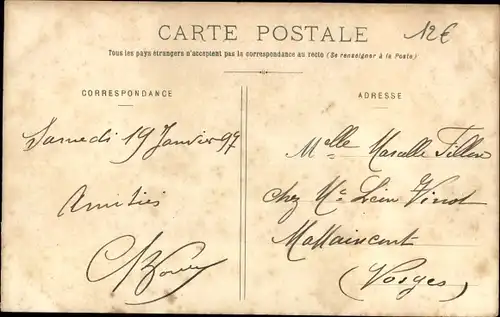 CARTE POSTALE
12€
Tous les pays étrangers n'acceptent pas la correspondance au recto (Se renseigner à la Poste)
CORRESPONDANCE
Samedi 19 Janvier 97
Amitiés
ADRESSE
Melle Marcelle
chez Mr
(Vosges)